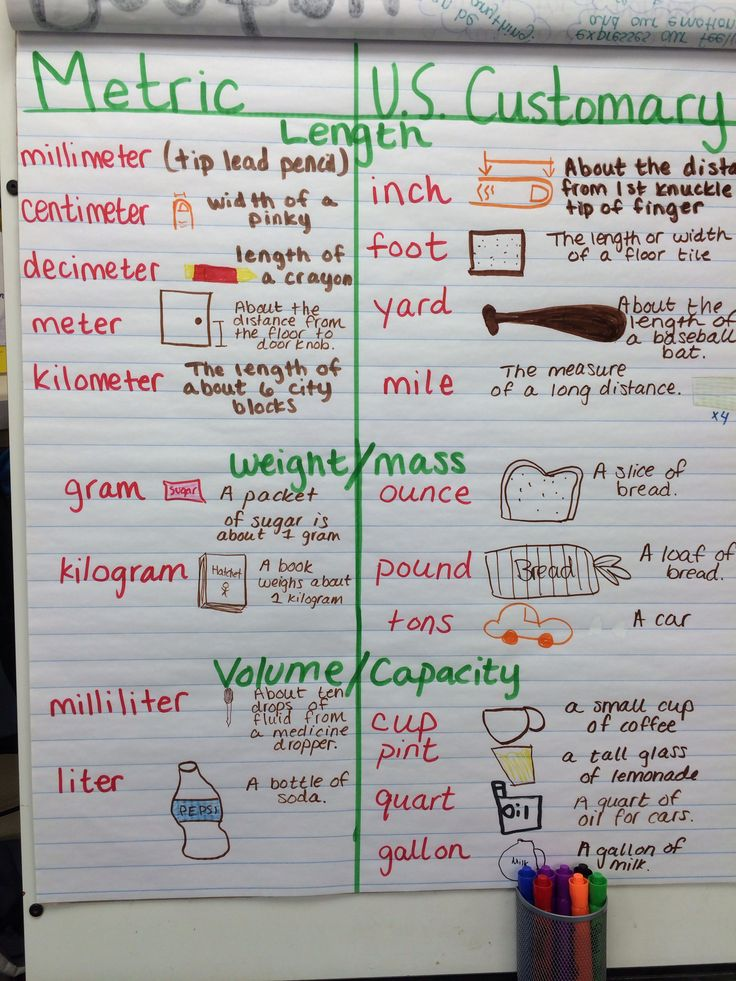 and our emotion
expresses our
Metric
U.S. Customary
Length
millimeter (tip lead pencil)
centimeter
width of a
pinky
decimeter
length of
a crayon
meter
About the
distance from
the floor to
door knob.
kilometer
The length of
about 6 city
blocks
inch
About the dista
from 1st knuckle
tip of finger
foot
The length or width
of a floor tile
yard
About the
length of
a baseball
bat.
mile
The measure
of a long distance.
x4
Weight/mass
gram
Sugar
A packet
of sugar is
about 1 gram
kilogram
Hatchet
A book
weighs about
1 kilogram
ounce
A slice of
bread.
pound
Bread
A loaf of
bread.
tons
A car
Volume/Capacity
milliliter
About ten
drops of
fluid from
a medicine
dropper.
liter
PEPSI
A bottle of
soda.
cup
a small cup
of coffee
pint
a tall glass
of lemonade
quart
Oil
A quart of
oil for cars.
gallon
Milk
A gallon of
milk.